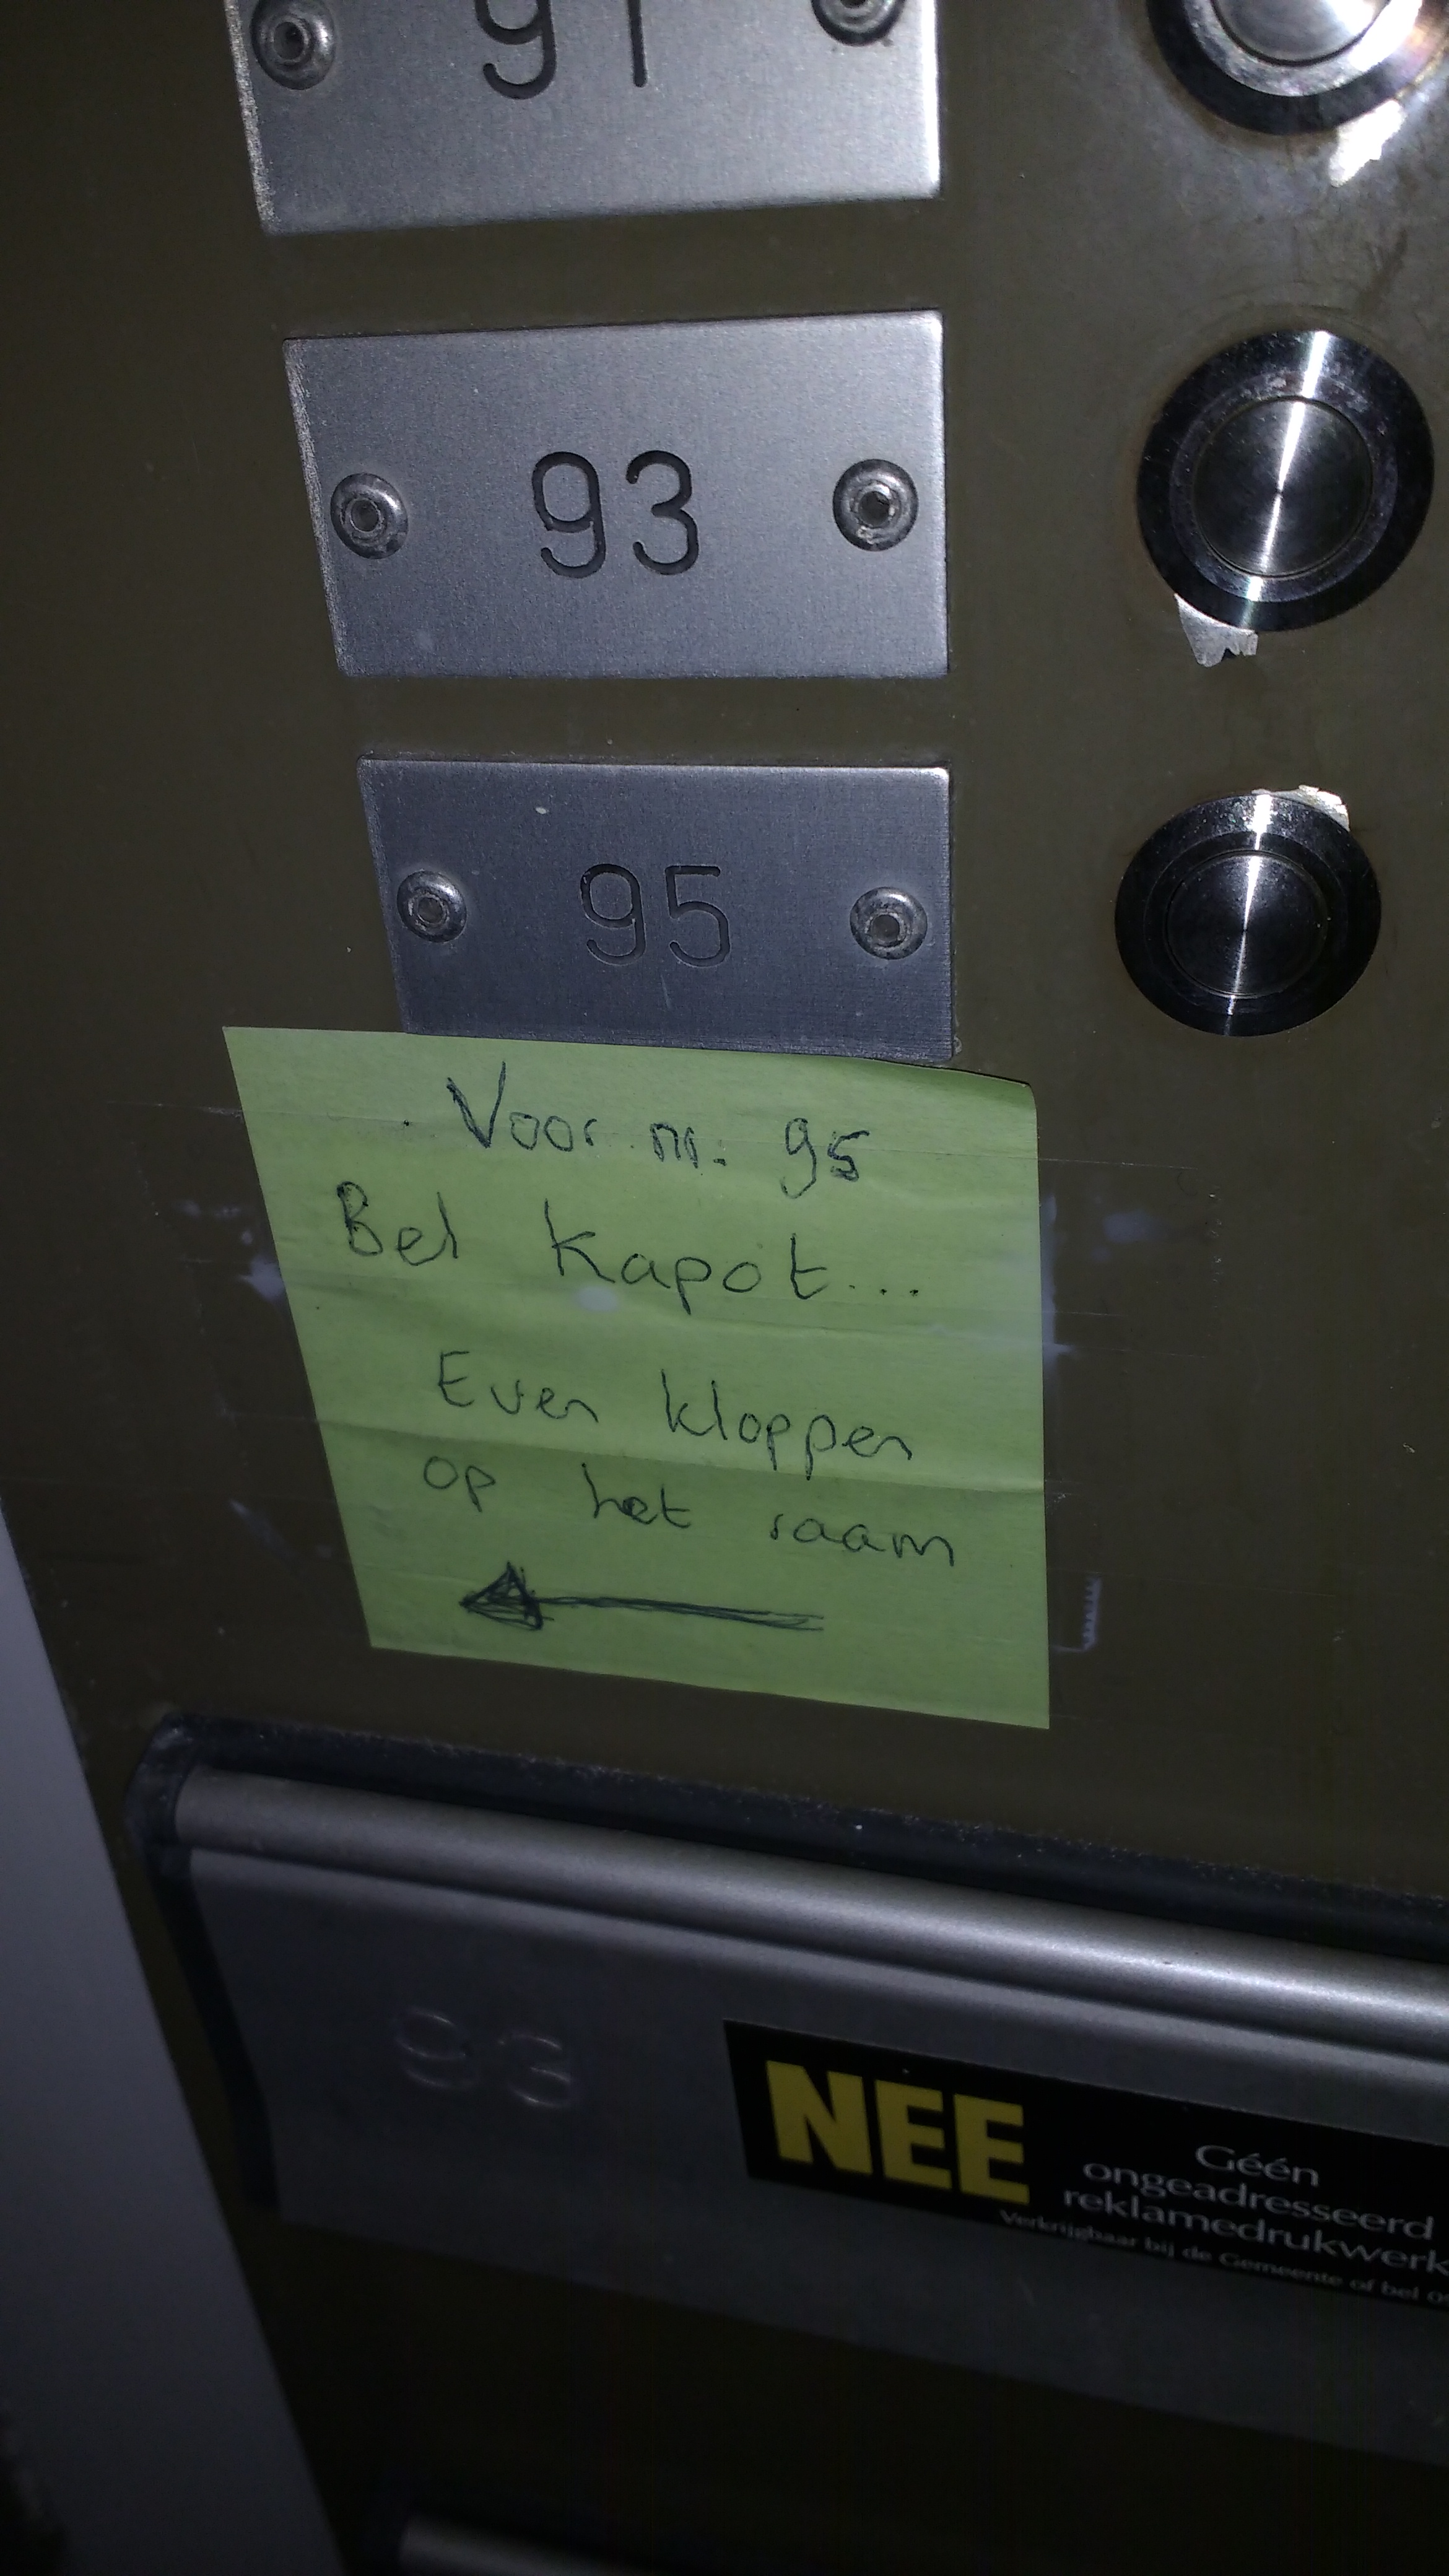 91
93
95
Voor nr. 95
Bel kapot...
Even kloppen
op het raam
93
NEE
Géén
ongeadresseerd
reklamedrukwerk
Verkrijgbaar bij de Gemeente of bel